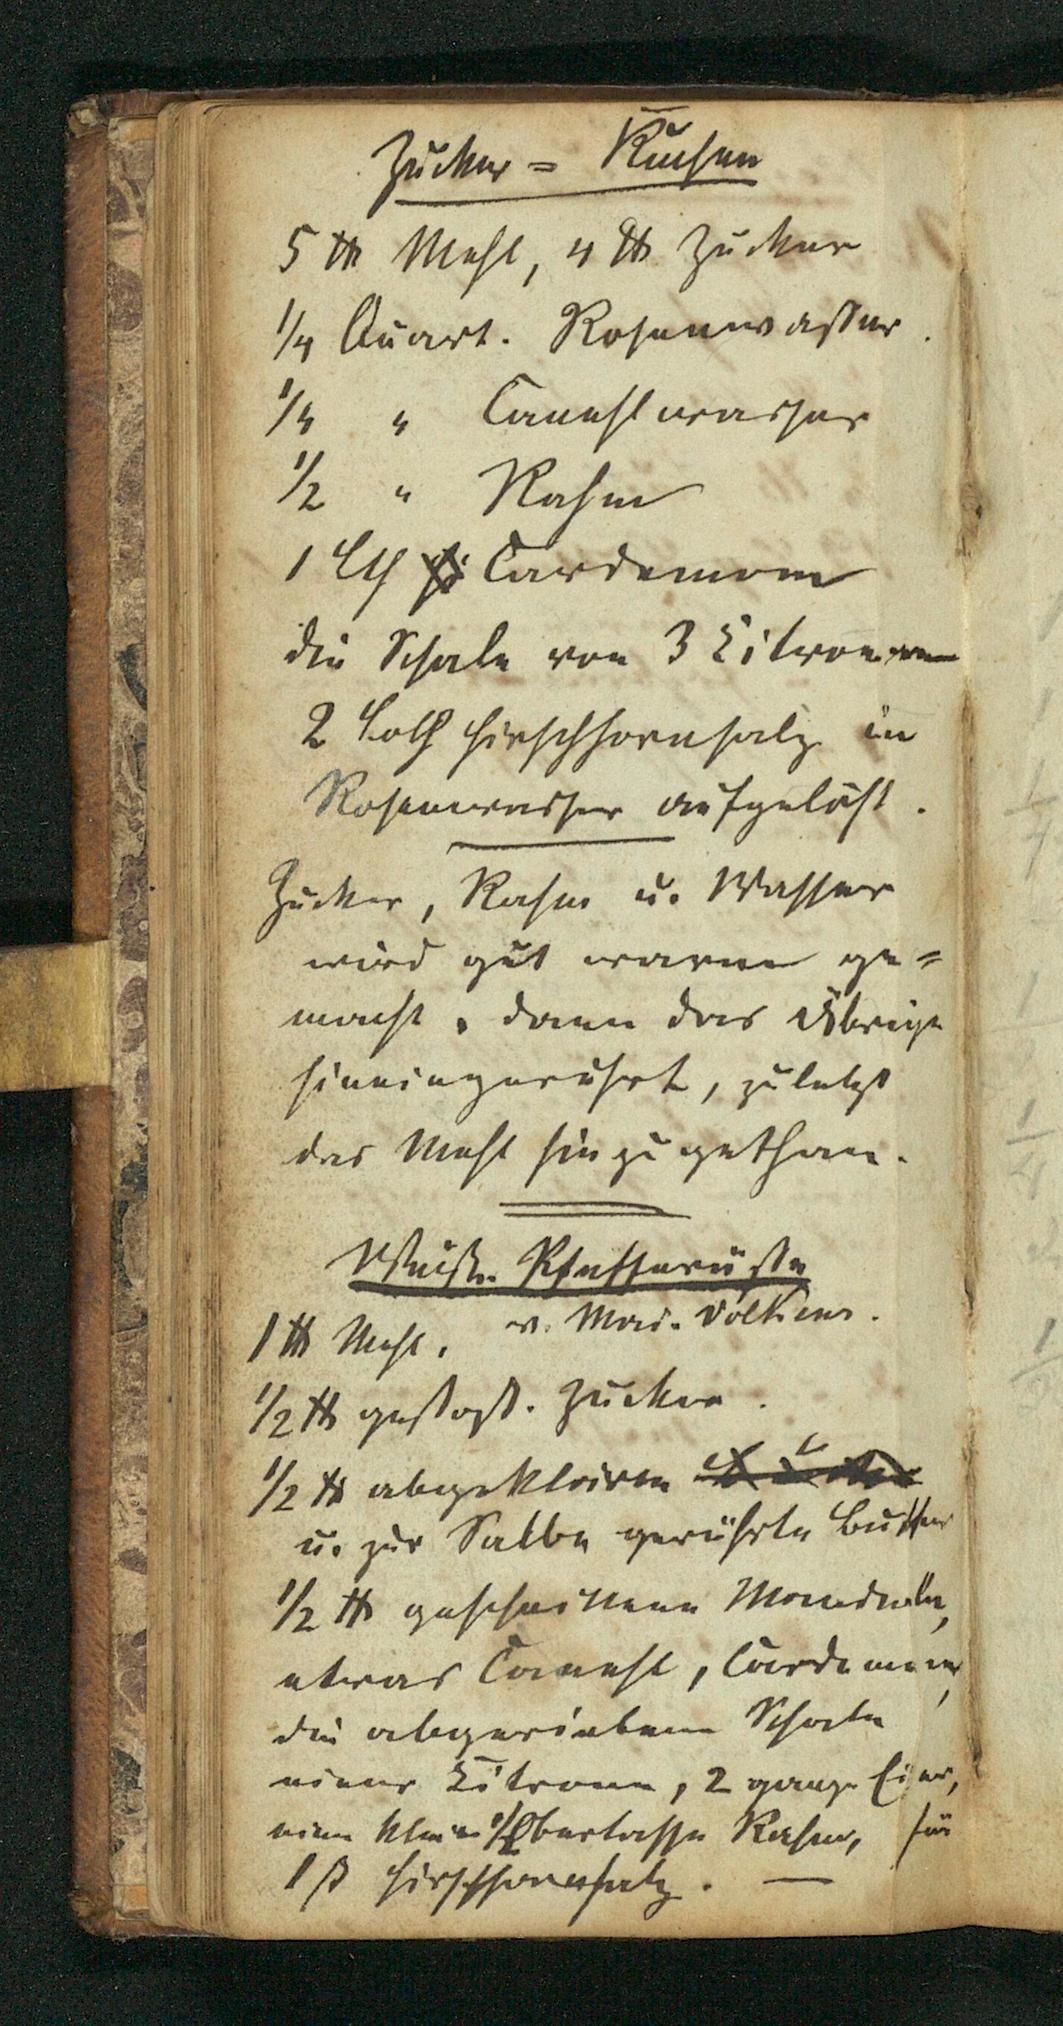 Zucker = Kuchen
5 ℔ Mehl, 4 ℔ Zucker
1/4 Quart. Rosenwasser.
1/4 " Canehlwasser
1/2 " Rahm
1 Lth Cardemom
die Schale von 3 Citronen
2 Loth Hirschhornsalz in
Rosenwasser aufgelöst.
Zucker, Rahm u. Wasser
wird gut warm ge=
macht, dann das Übrige
hineingerührt, zuletzt
das Mehl hinzugethan.
Weiße Pfeffernüße
v. Mad. Völkers.
1 ℔ Mehl,
1/2 ℔ gestoß. Zucker.
1/2 ℔ abgeklärte
u. zur Salbe gerührte Butter
1/2 ℔ geschnittene Mandeln,
etwas Canehl, Cardemom,
die abgeriebene Schale
einer Citrone, 2 ganze Eier,
eine kleine 1/2 Obertasse Rahm, für
1 ß Hirschhornsalz. —